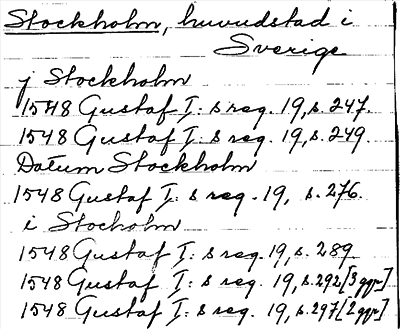 Stockholm, huvudstad i
Sverige
j Stockholm
1548 Gustaf I: s reg. 19, s. 247.
1548 Gustaf I: s reg. 19, s. 249.
Datum Stockholm
1548 Gustaf I: s reg. 19, s. 276.
i Stocholm
1548 Gustaf I: s reg. 19, s. 289
1548 Gustaf I: s reg. 19, s. 292 [3 ggr]
1548 Gustaf I: s reg. 19, s. 297 [2 ggr]